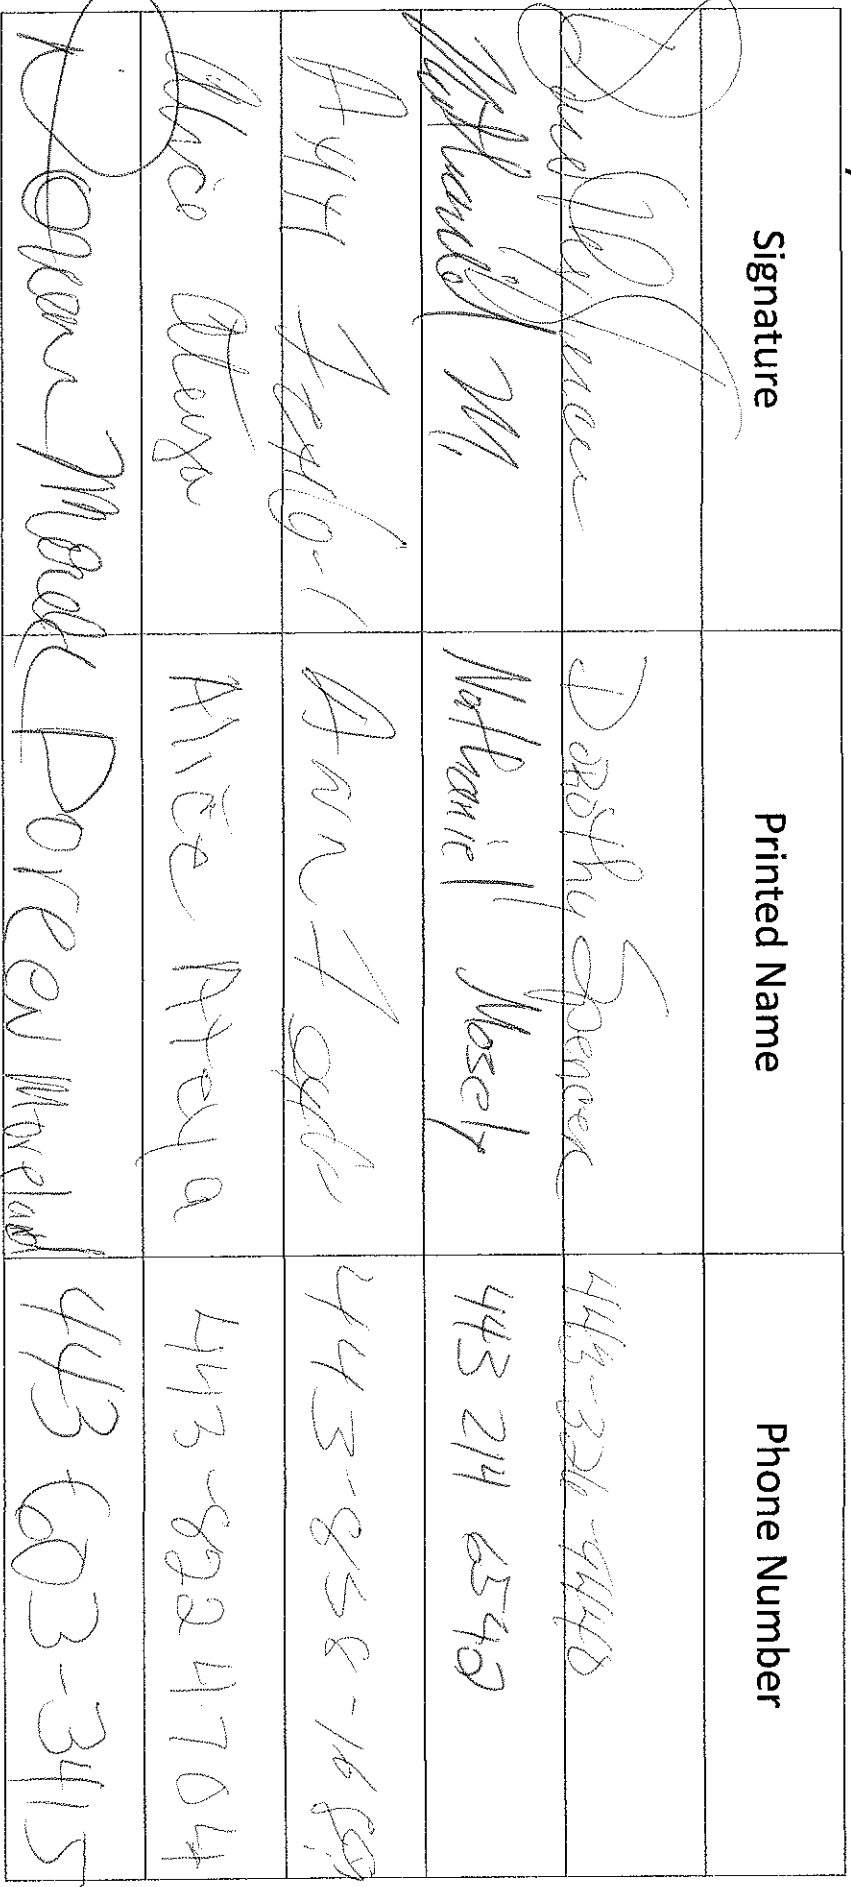 Signature Printed Name Phone Number
Dorothy Spencer 443-326-9440
Nathaniel M. Nathaniel Mosely 443 214 6540
Ann Ann 443-858-168
Alice Ateya Alice Ateya 443-822 4704
Doreen Morel Doreen Moreland 443-603-3415